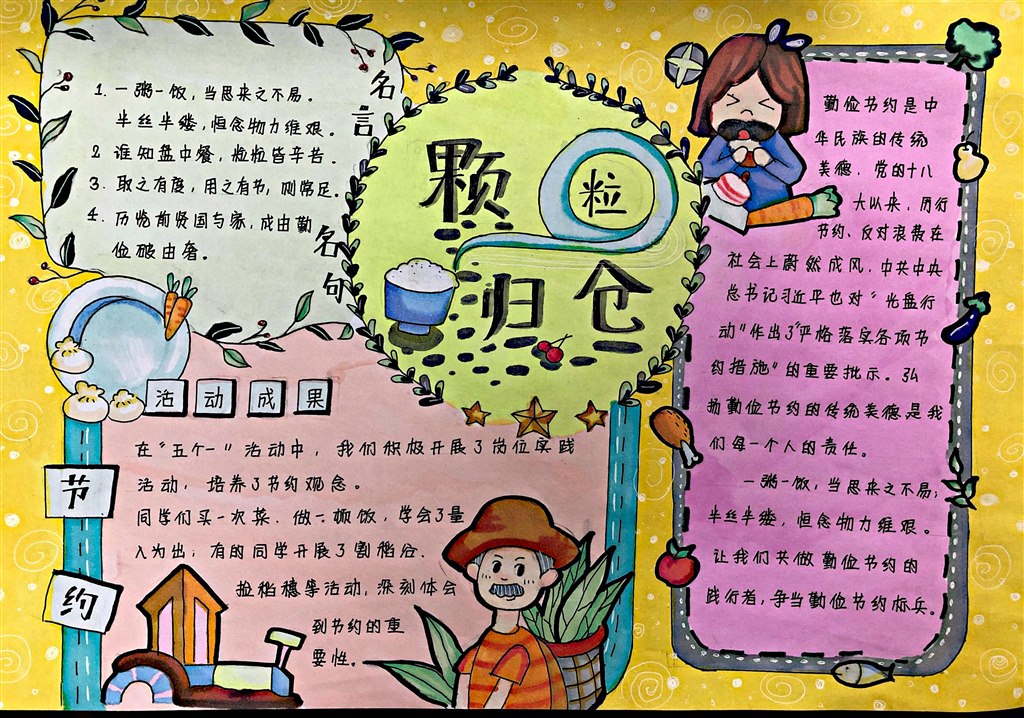 名言
名句
1. 一粥一饭，当思来之不易。
半丝半缕，恒念物力维艰。
2. 谁知盘中餐，粒粒皆辛苦。
3. 取之有度，用之有节，则常足。
4. 历览前贤国与家，成由勤
俭破由奢。
颗粒
归仓
活动成果
在“五个一”活动中，我们积极开展了岗位实践
活动，培养了节约观念。
同学们买一次菜、做一顿饭，学会了量
入为出；有的同学开展了割稻谷、
捡稻穗等活动，深刻体会
到节约的重
要性。
节
约
勤俭节约是中
华民族的传统
美德，党的十八
大以来，厉行
节约、反对浪费在
社会上蔚然成风，中共中央
总书记习近平也对“光盘行
动”作出了“严格落实各项节
约措施”的重要批示。弘
扬勤俭节约的传统美德是我
们每一个人的责任。
一粥一饭，当思来之不易；
半丝半缕，恒念物力维艰。
让我们共做勤俭节约的
践行者，争当勤俭节约标兵。